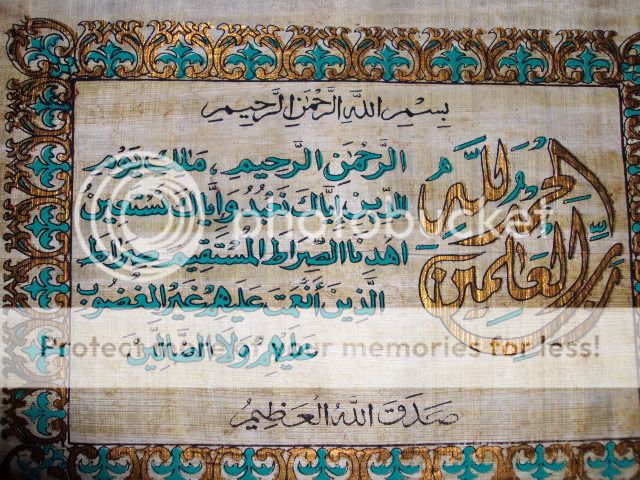 بِسْمِ اللَّهِ الرَّحْمَٰنِ الرَّحِيمِ
الحمد لله
رب العلمين
الرَّحْمَٰنِ الرَّحِيمِ، مَالِكِ يَوْمِ
الدِّينِ، إِيَّاكَ نَعْبُدُ وَإِيَّاكَ نَسْتَعِينُ
اهْدِنَا الصِّرَاطَ الْمُسْتَقِيمَ صِرَاطَ
الَّذِينَ أَنْعَمْتَ عَلَيْهِمْ غَيْرِ الْمَغْضُوبِ
عَلَيْهِمْ وَلَا الضَّالِّينَ
صَدَقَ اللَّهُ الْعَظِيمُ
photobucket
Protect more of your memories for less!